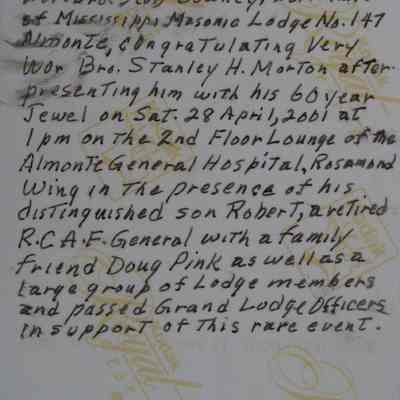 of Mississippi Masonic Lodge No. 147
Almonte, congratulating Very
Wor Bro. Stanley H. Morton after
presenting him with his 60 year
Jewel on Sat. 28 April, 2001 at
1 pm on The 2nd Floor Lounge of the
Almonte General Hospital, Rosamond
Wing in The presence of his
distinguished son Robert, a retired
R.C.A.F. General with a family
friend Doug Pink as well as a
large group of Lodge members
and passed Grand Lodge Officers
in support of This rare event.